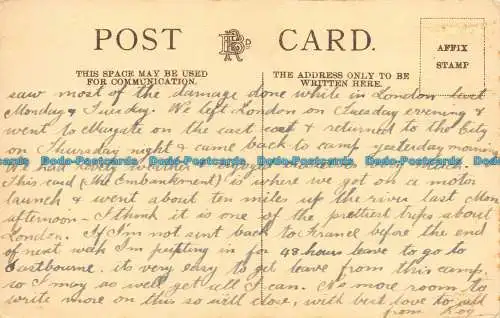 POST CARD.
THIS SPACE MAY BE USED FOR COMMUNICATION.
THE ADDRESS ONLY TO BE WRITTEN HERE.
AFFIX STAMP
saw most of the damage done while in London last
Monday & Tuesday. We left London on Tuesday evening &
went to Margate on the east coast & returned to the City
on Thursday night & came back to camp yesterday morning
We had lovely weather
Dodo-Postcards Dodo-Postcards Dodo-Postcards Dodo-Postcards Dodo-Postcards
This card (The Embankment) is where we got on a motor
launch & went about ten miles up the river last Mon
afternoon - I think it is one of the prettiest trips about
London. If I'm not sent back to France before the end
of next week I'm putting in for 48 hours leave to go to
Eastbourne. its very easy to get leave from this camp
so I may as well get all I can. No more room to
write more on this so will close, with best love to all
from Roy